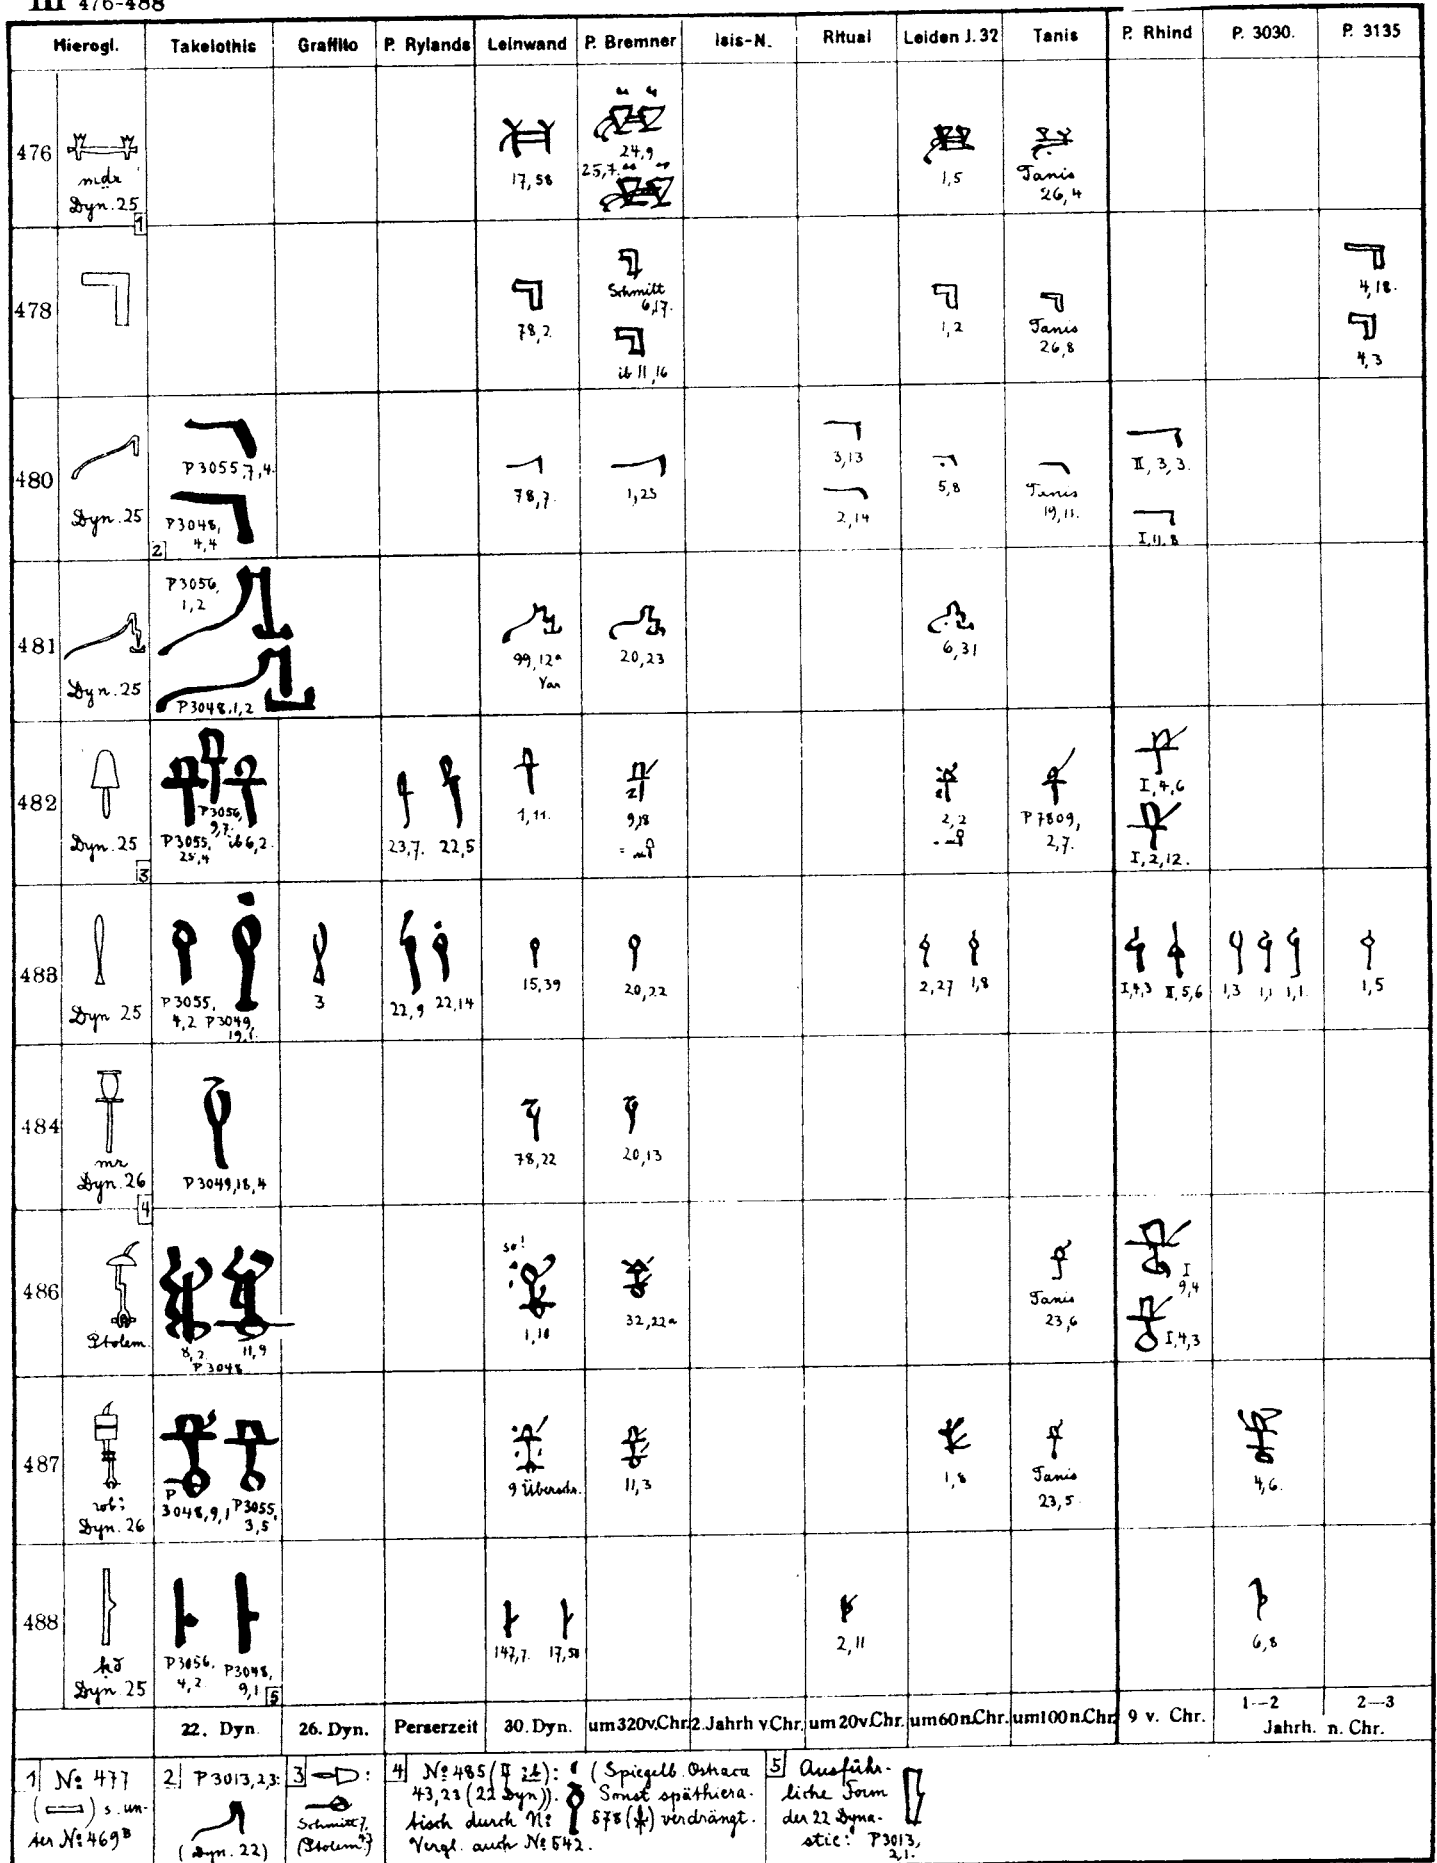 III 476-488
Hierogl. Takelothis Graffito P. Rylands Leinwand P. Bremner Isis-N. Ritual Leiden J. 32 Tanis P. Rhind P. 3030. P. 3135
476
Dyn. 25
1
17,58
24,9
25,7
1,5
Tanis
26,4
478
78,2
Schmitt
6,17.
ib 11,16
1,2
Tanis
26,8
4,18.
4,3
480
Dyn. 25
P3055,7,4.
P3048,
4,4
2
78,7.
1,25
3,13
2,14
5,8
Tanis
19,11.
II, 3,3.
I,11,8
481
Dyn. 25
P3056,
1,2
P3048,1,2
99,12a
Var
20,23
6,31
482
Dyn. 25
3
P3056,
9,7.
P3055,
25,4
ib 6,2.
23,7. 22,5
1,11.
9,18
2,2
P7809,
2,7.
I,4,6
I,2,12.
483
Dyn 25
P3055,
4,2
P3049,
19,1.
3
22,9 22,14
15,39
20,22
2,27 1,8
I,4,3 II,5,6
1,3 1,1 1,1.
1,5
484
mr
Dyn. 26
4
P3049,18,4
78,22
20,13
486
Ptolem.
8,2. 11,9
P3048
so!
1,10
32,22a
Tanis
23,6
I
9,4
I,4,3
487
Dyn. 26
P
3048,9,1
P3055,
3,5
9 Überschr.
11,3
1,8
Tanis
23,5.
4,6.
488
Dyn. 25
P3056,
4,2
P3048,
9,1
5
147,7. 17,50
2,11
6,8
22. Dyn. 26. Dyn. Perserzeit 30. Dyn. um320v.Chr. 2. Jahrh v.Chr. um 20v.Chr. um60n.Chr. um100n.Chr 9 v. Chr. 1--2 2--3
Jahrh. n. Chr.
1 No 477
( ) s. un-
ter No 469B
2 P3013,2,3:
(Dyn. 22)
3 :
Schmitt 7,
(Ptolem.)
4 No 485 ( ): (Spiegelb. Ostraca
43,23 (22 Dyn)). Sonst späthiera-
tisch durch No 578 ( ) verdrängt.
Vergl. auch No 542.
5 Ausführ-
liche Form
der 22 Dyna-
stie: P3013,
2,1.